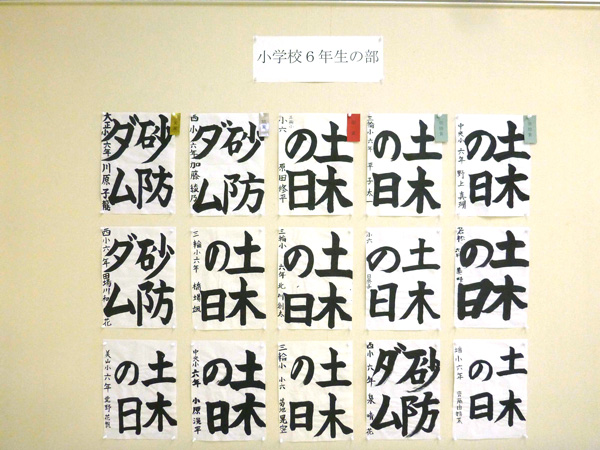 小学校6年生の部
砂防
ダム
大正小六年
砂防
ダム
西小六年 加藤
土木
の日
小六 原田修平
土木
の日
三輪小六年 平
土木
の日
中央小六年 野上
砂防
ダム
西小六年
土木
の日
三輪小六年
土木
の日
三輪小六年
土木
の日
小六
土木
の日
砂防
ダム
西小六年
土木
の日
美山小六年
土木
の日
中央小六年 小原
土木
の日
三輪小 小六 菊地
土木
の日
小六年